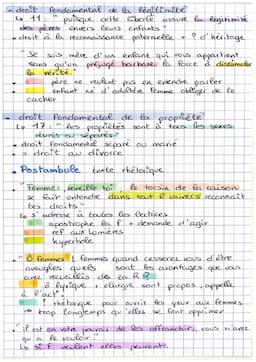 - droit fondamental de la légitimité
↳ 11 : "puisque cette liberté assure la légitimité des pères envers leurs enfants"
• droit à la reconnaissance paternelle + ? d'héritage
"Je suis mère d'un enfant qui vous appartient sans qu'un préjugé barbare la force à dissimuler la vérité"
père ne veulent pas en entendre parler
enfant né d'adultère femme obligée de le cacher
- droit fondamental de la propriété
↳ 17 : "les propriétés sont à tous les sexes réunis ou séparés"
• droit fondamental séparé ou marié
• = droit au divorce
• Postambule texte rhétorique
"Femme, réveille toi ; le tocsin de la raison se fait entendre dans tout l'univers reconnaît tes droits"
↳ s'adresse à toutes les lectrices
apostrophe la F + demande d'agir
ref aux lumières
hyperbole
• "Ô femmes ! femmes quand cesserez vous d'être aveugles quels sont les avantages que vous avez recueillis de la R ?"
ô lyrique + élargie sont propos, appelle à l'act°
? rhétorique pour ouvrir les yeux aux femmes
→ trop longtemps qu'elles se font opprimer
• "il est en votre pouvoir de les affranchir, vous n'avez qu'à le vouloir"
↳ si F veulent elles peuvent.